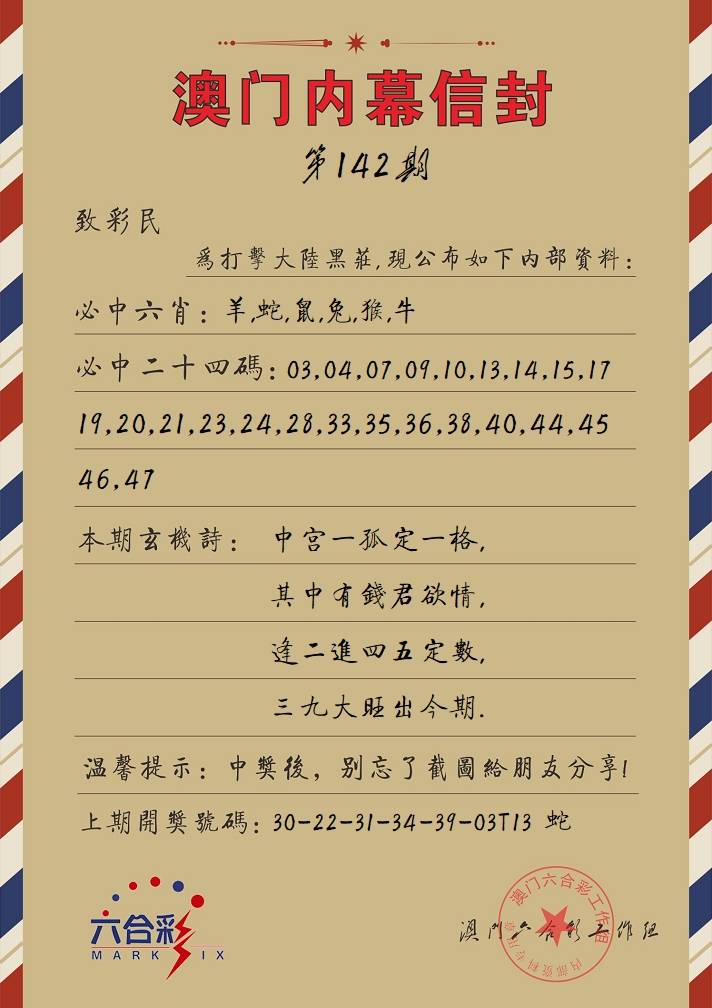 澳门内幕信封
第142期
致彩民
爲打擊大陸黑莊,現公布如下内部資料:
必中六肖:羊,蛇,鼠,兔,猴,牛
必中二十四碼:03,04,07,09,10,13,14,15,17
19,20,21,23,24,28,33,35,36,38,40,44,45
46,47
本期玄機詩: 中宫一孤定一格,
其中有錢君欲情,
逢二進四五定數,
三九大旺出今期.
温馨提示:中獎後,别忘了截圖給朋友分享!
上期開獎號碼:30-22-31-34-39-03T13 蛇
六合彩
MARK SIX
澳门六合彩工作组
内部资料专用章
澳门六合彩工作组